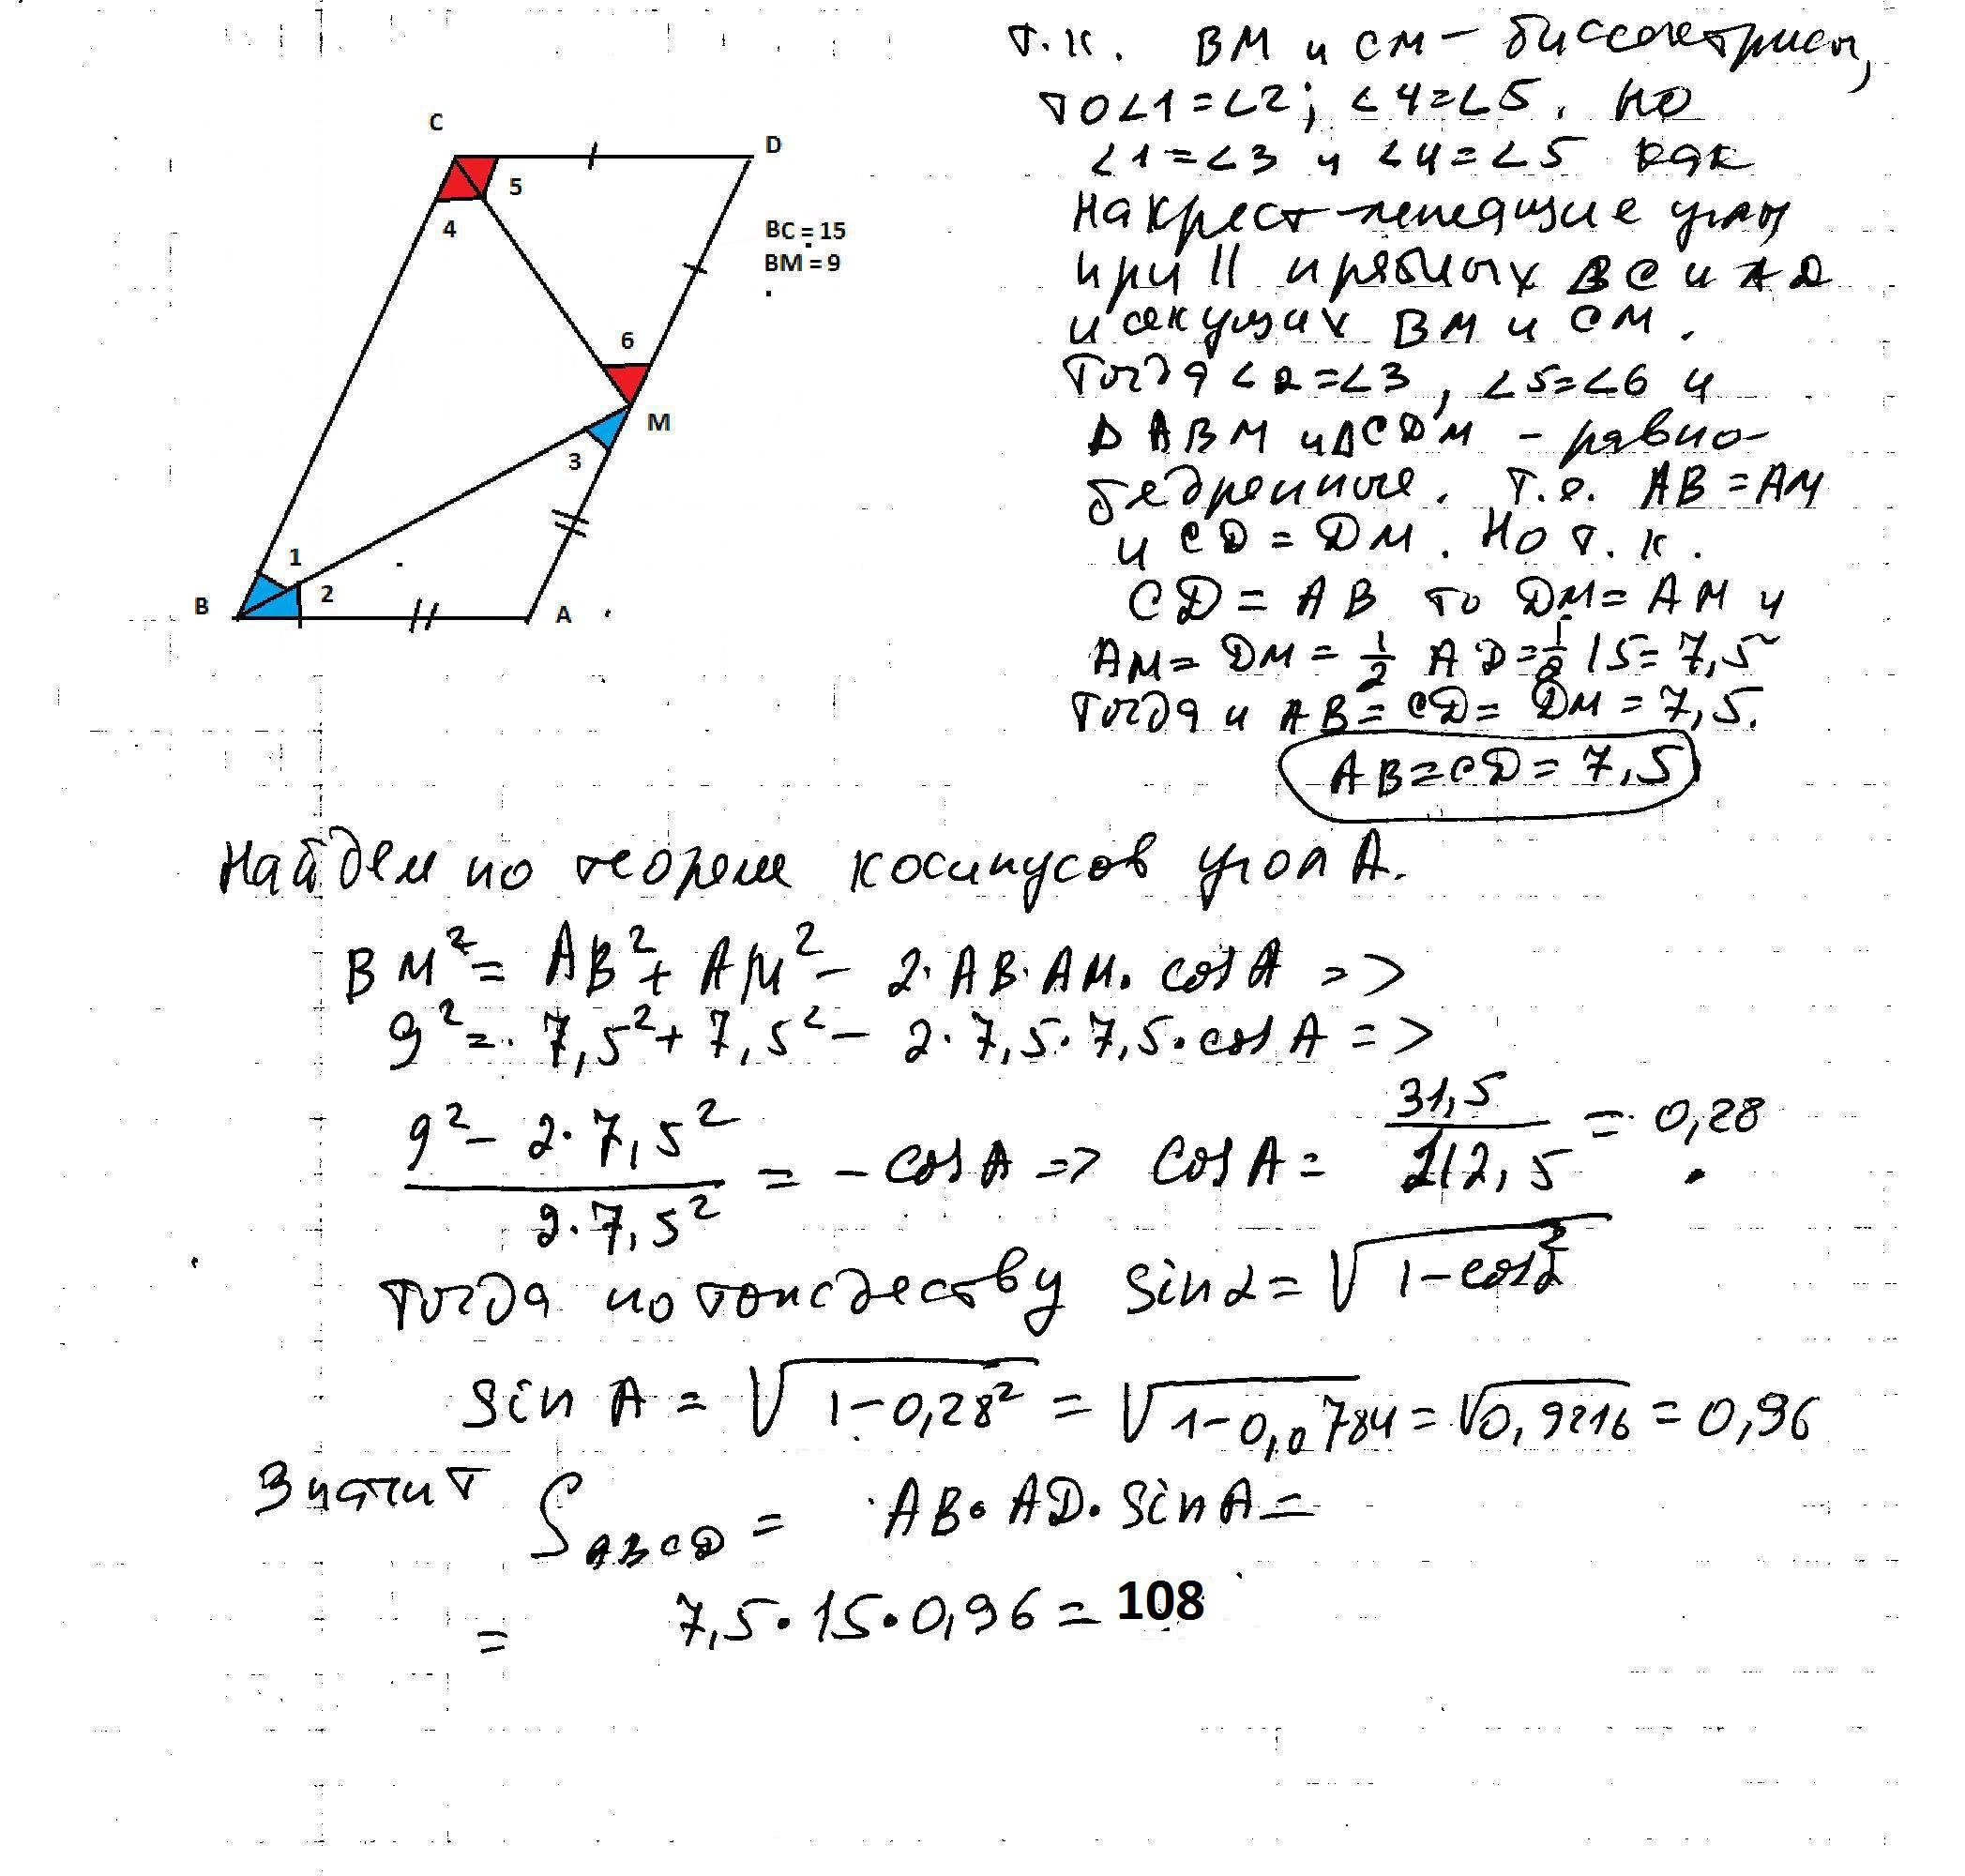 C
D
5
4
BC = 15
BM = 9
6
M
3
1
2
B
A
т.к. BM и CM – биссектрисы,
то ∠1=∠2; ∠4=∠5. но
∠1=∠3 и ∠4=∠5 как
накрест-лежащие углы
при || прямых BC и AD
и секущих BM и CM.
Тогда ∠2=∠3, ∠5=∠6 и
Δ ABM и ΔCDM – равно-
бедренные. т.е. AB=AM
и CD = DM. Но т.к.
CD = AB то DM = AM и
AM = DM = 1/2 AD = 1/2 15 = 7,5
Тогда и AB = CD = DM = 7,5.
AB = CD = 7,5
Найдем по теореме косинусов угол A.
BM² = AB² + AM² – 2·AB·AM·cos A =>
9² = 7,5² + 7,5² – 2·7,5·7,5·cos A =>
(9² – 2·7,5²)/(2·7,5²) = –cos A => cos A = 31,5/112,5 = 0,28
Тогда по тождеству sin α = √(1–cos²α)
sin A = √(1–0,28²) = √(1–0,0784) = √0,9216 = 0,96
Значит S ABCD = AB·AD·sin A =
= 7,5·15·0,96 = 108